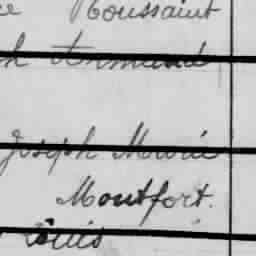 Toussaint
h Armand
Joseph Marie
Montfort.
Louis